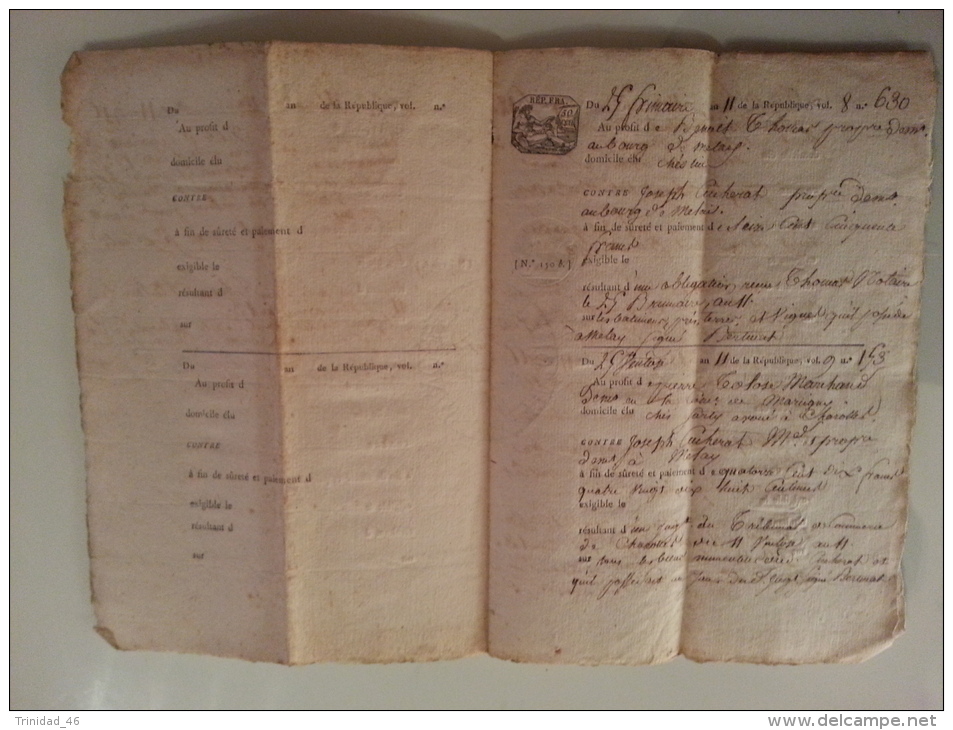 Du an de la République, vol. n.º
Au profit d
domicile élu
CONTRE
à fin de sûreté et paiement d
exigible le
résultant d
sur
Du an de la République, vol. n.º
Au profit d
domicile élu
CONTRE
à fin de sûreté et paiement d
exigible le
résultant d
sur
RÉP. FRA.
50
CENT
Du 25 frimaire an 11 de la République, vol. 8 n.º 630
Au profit de Thomas propre dem.t
au bourg de melay.
domicile élu chés lui
CONTRE Joseph Cucherat propre dem.t
au bourg de Melai.
à fin de sûreté et paiement de Seize Cent Cinquante
francs
[ N.º 150 A. ]
exigible le
résultant d'une obligation reçue Thomas Notaire
le 25 Brumaire, an 11
sur les batimens, prés, terres, et Vignes qu'il possède
à Melay signé
Du 25 Ventose an 11 de la République, vol. 9 n.º 153
Au profit de pierre Marchand
dem.t de Marigny
domicile élu chés avoué à Charolles
CONTRE Joseph Cucherat M.d et propre
dem.t à Melay
à fin de sûreté et paiement de quatorze Cent dix francs
quatre vingt dix huit Centimes
exigible le
résultant d'un jug.t du Tribunal de Commerce
de Charolles du 11 Ventose an 11
sur tous les biens immeubles dud. Cucherat et
qu'il possedait au Jour dud. Jug.t signé
Trinidad_46
www.delcampe.net